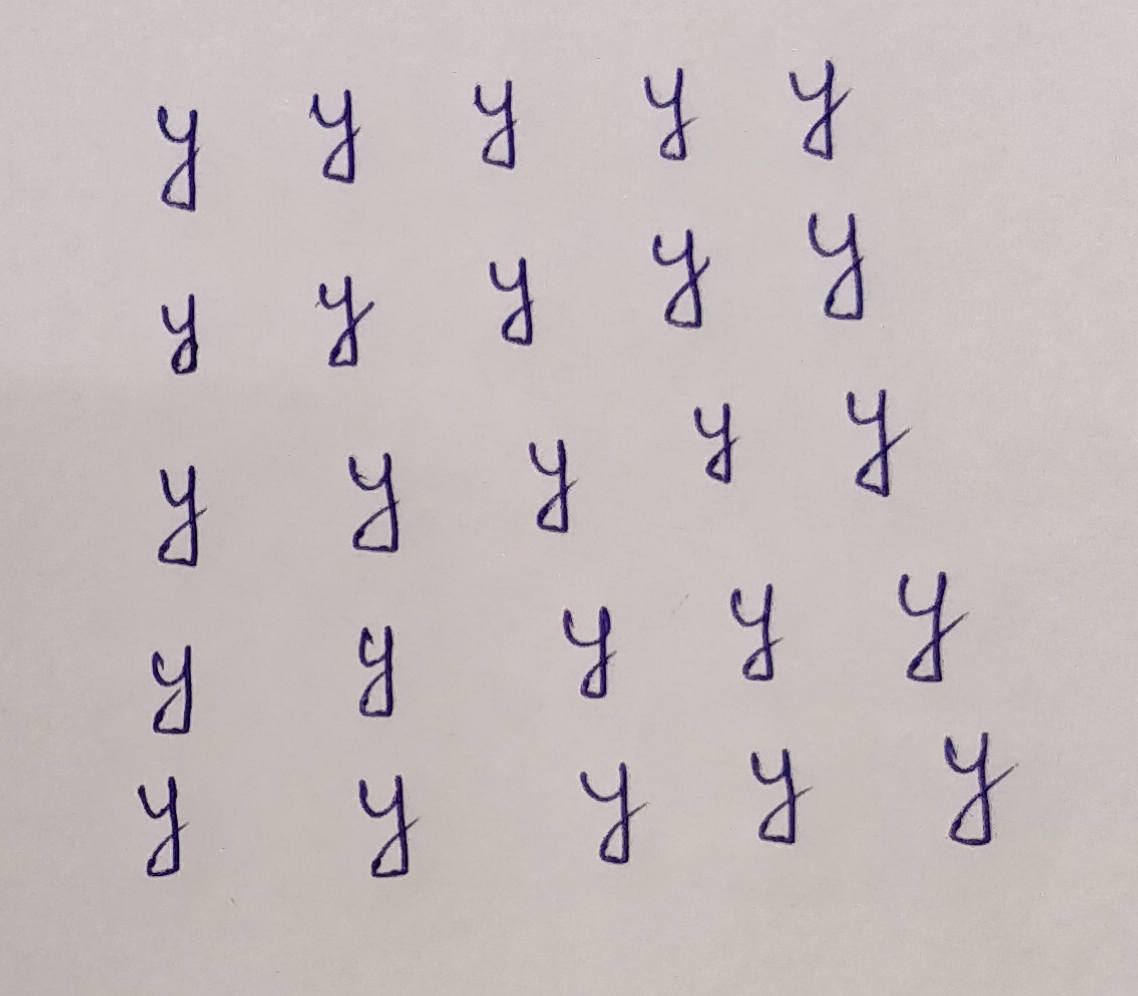 y y y y y
y y y y y
y y y y y
y y y y y
y y y y y